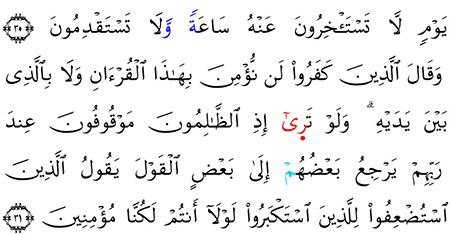 يَوۡمٖ لَّا تَسۡتَـٔۡخِرُونَ عَنۡهُ سَاعَةٗ وَّلَا تَسۡتَقۡدِمُونَ ۝٣٠
وَقَالَ ٱلَّذِينَ كَفَرُواْ لَن نُّؤۡمِنَ بِهَٰذَا ٱلۡقُرۡءَانِ وَلَا بِٱلَّذِي
بَيۡنَ يَدَيۡهِۗ وَلَوۡ تَرِىٰٓ إِذِ ٱلظَّٰلِمُونَ مَوۡقُوفُونَ عِندَ
رَبِّهِمۡ يَرۡجِعُ بَعۡضُهُمۡ إِلَىٰ بَعۡضٍ ٱلۡقَوۡلَ يَقُولُ ٱلَّذِينَ
ٱسۡتُضۡعِفُواْ لِلَّذِينَ ٱسۡتَكۡبَرُواْ لَوۡلَآ أَنتُمۡ لَكُنَّا مُؤۡمِنِينَ ۝٣١